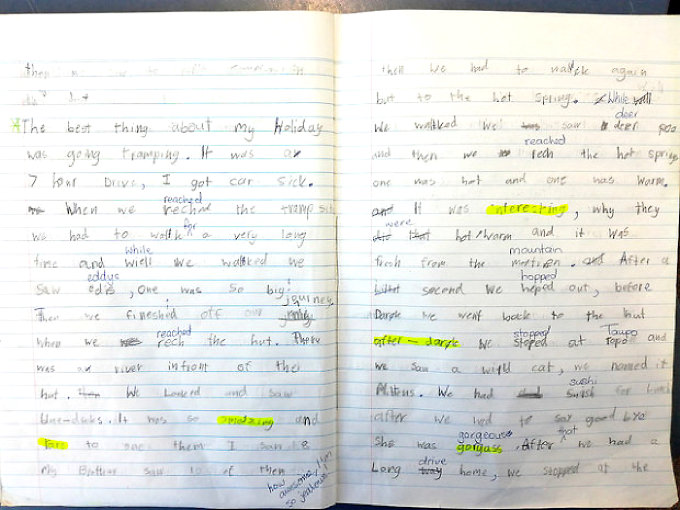 The best thing about my Holiday
was going tramping. It was a
7 hour Drive, I got car sick.
reached
When we reched the tramp sit
we had to walk for a very long
while
time and wiell we walked we
eddys
saw edis, One was so big!
journey.
Then we fineshed off our
reached
when we rech the hut. There
was a river infront of the
hut. We Looked and saw
blue-ducks. It was so amazing and
rare to see them I saw 2
my Brother saw 10 of them
how awesome, I'm so jealous!
then We had to walk again
but to the hot spring. While
deer
We walked we saw deer poo
reached
and then we rech the hot springs
one was hot and one was warm.
and It was interesting, why they
were
did that hot/warm and it was
mountain
fresh from the . After a
hopped
second We hoped out, before
Darck we went back to the hut
stopped Taupo
after-darck We stoped at Topo and
we saw a wild cat, we named it
Mittens. We had for lunch
sushi
after we had to say good bye
gorgeous that
She was gorgass. After we had a
drive
Long way home, we stopped at the